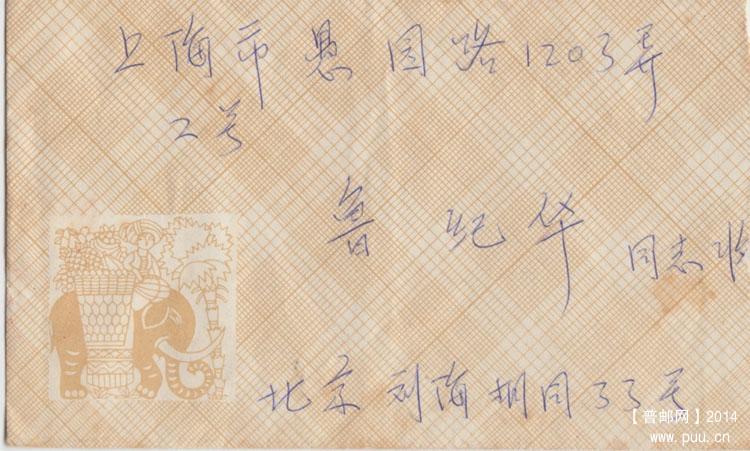 上海市愚园路1203弄
2号
鲁纪华 同志收
北京 刘海胡同33号
【普邮网】2014
www.puu.cn